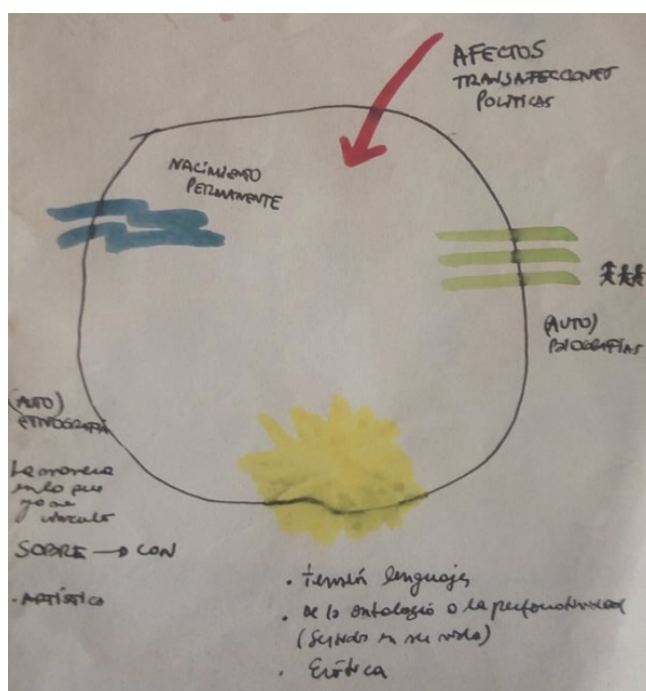 AFECTOS
TRANSAFECCIONES
POLÍTICAS
NACIMIENTO
PERMANENTE
(AUTO)
BIOGRAFÍAS
(AUTO)
ETNOGRAFÍA
La manera
en la que
yo me
vinculo
SOBRE → CON
- ARTÍSTICO
• Tensión lenguajes
• De la ontología a la performatividad
(Sentido en su vida)
• Erótica